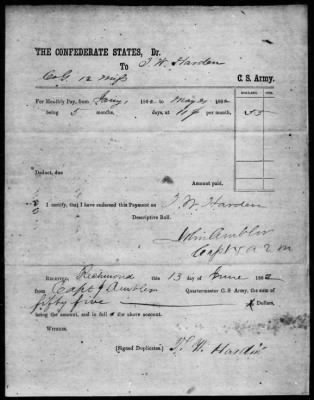 THE CONFEDERATE STATES, Dr.
To J. W. Harden
Co G. 12 Miss C. S. Army.
DOLLARS CTS.
For Monthly Pay, from Jany 1 1862, to May 31 1862
being 5 months, days, at 11 per month, 55
Deduct, due
Amount paid,
I certify, that I have endorsed this Payment on J. W Harden
Descriptive Roll.
John Ambler
Capt & A Q M
RECEIVED, Richmond this 13 day of June 1862
from Capt J Ambler Quartermaster C. S. Army, the sum of
fifty five Dollars,
being the amount, and in full of the above account.
WITNESS.
(Signed Duplicates.) J. W Hardin